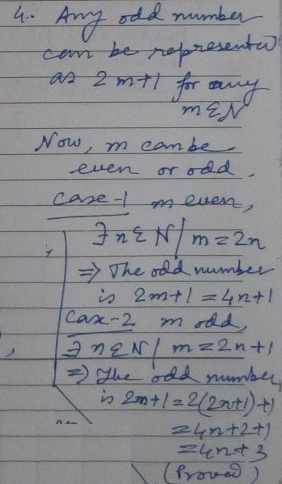 4. Any odd number
can be represented
as 2m+1 for any
m ε N
Now, m can be
even or odd.
Case-1 m even,
∃ n ε N | m = 2n
⇒ The odd number
is 2m+1 = 4n+1
Case-2 m odd,
∃ n ε N | m = 2n+1
⇒ The odd number
is 2m+1 = 2(2n+1)+1
= 4n+2+1
= 4n+3
(Proved)